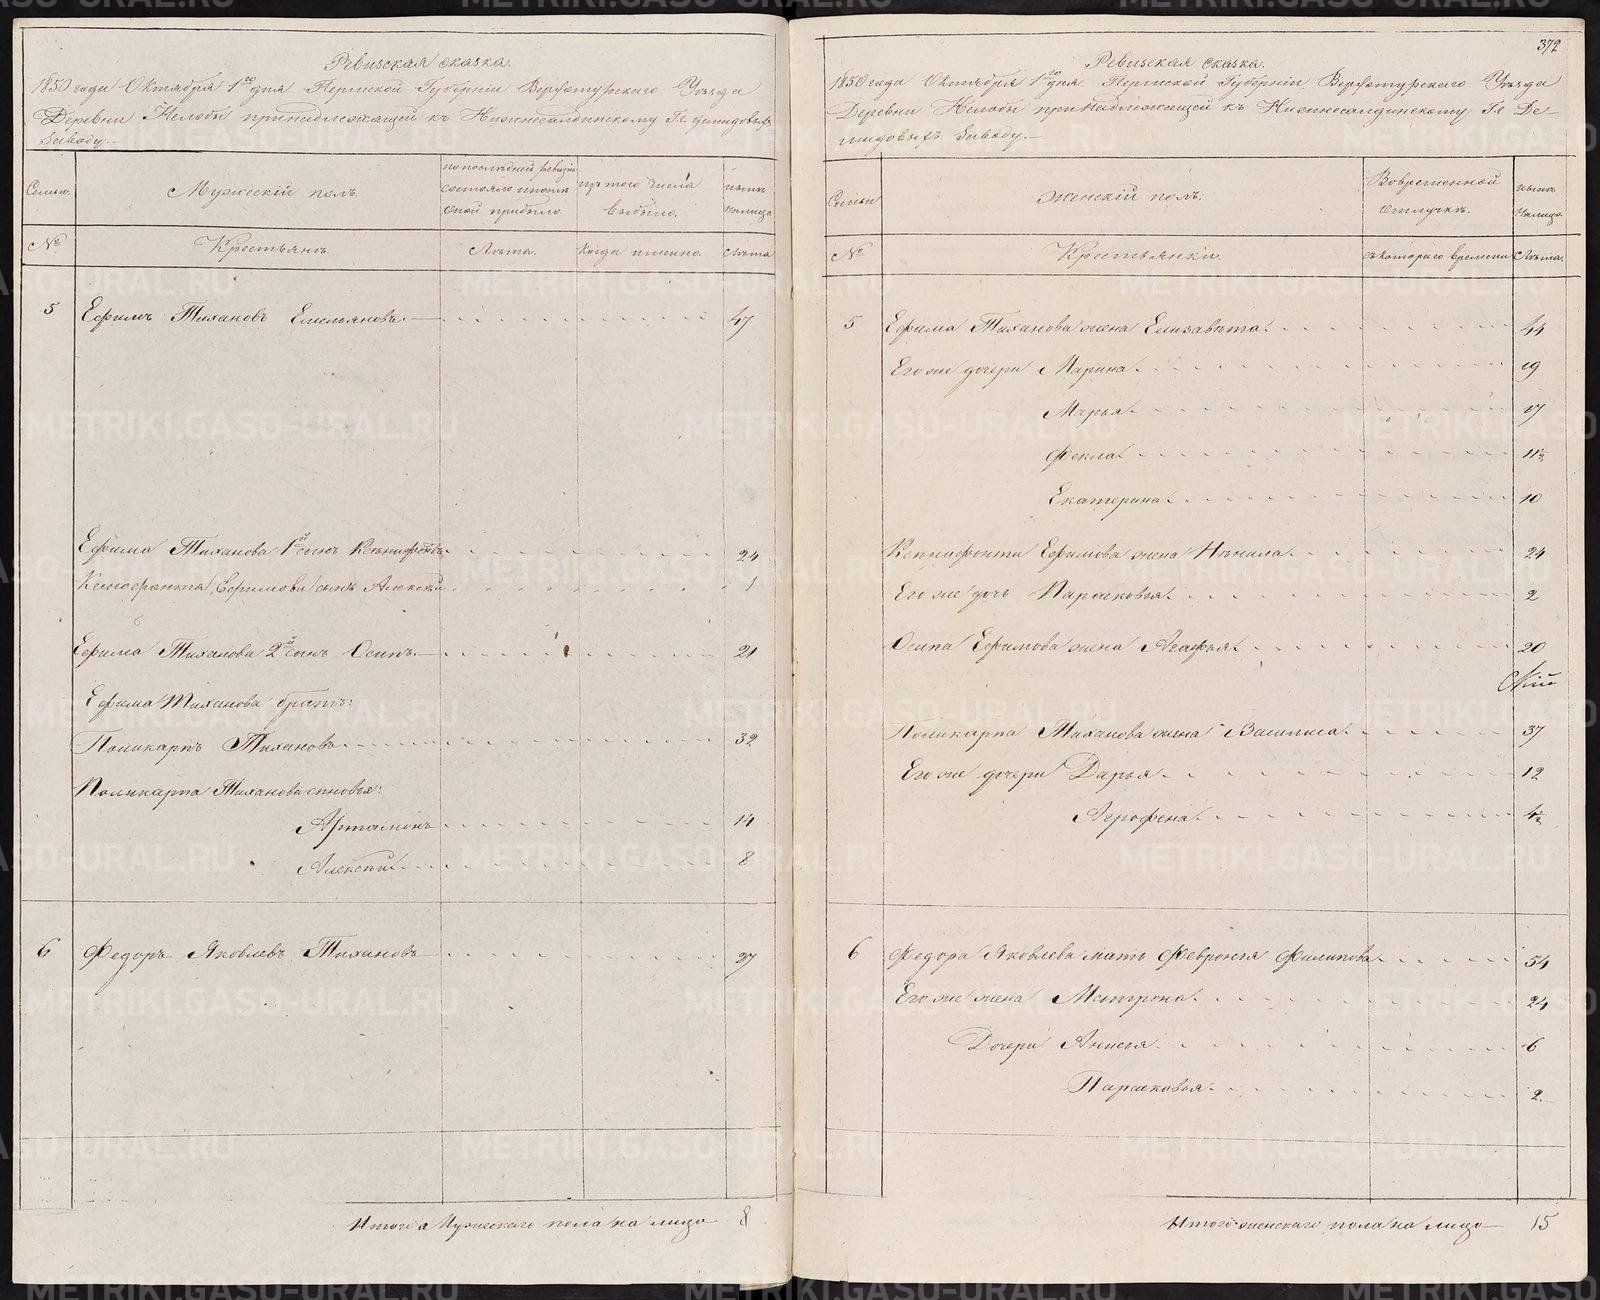 Ревизская сказка.
1850 года Октября 1го дня Пермской Губерніи Верхотурскаго Уѣзда
Деревни Нелобы принадлежащей къ Нижнесалдинскому Гг. Демидовыхъ
Заводу.
Семьи. Мужескій полъ. по послѣдней ревизіи состояло и послѣ оной прибыло. изъ того числа выбыло. нынѣ налицо
№ Крестьянъ. Лѣта. Когда именно. Лѣта
5 Ефимъ Тихановъ Емельяновъ. 47
Ефима Тиханова 1й сынъ Ксенофонтъ. 24
Ксенофонта Ефимова сынъ Алексѣй 1
Ефима Тиханова 2й сынъ Осипъ. 21
Ефима Тиханова братъ:
Поликарпъ Тихановъ 32
Поликарпа Тиханова сыновья:
Артамонъ 14
Алексѣй 8
6 Федоръ Яковлевъ Тихановъ 27
Итого Мужескаго пола на лицо 8
372
Ревизская сказка.
1850 года Октября 1го дня Пермской Губерніи Верхотурскаго Уѣзда
Деревни Нелобы принадлежащей къ Нижнесалдинскому Гг. Де-
мидовыхъ Заводу.
Семьи Женскій полъ. Во временной отлучкѣ. нынѣ налицо
№ Крестьянки. съ котораго времени Лѣта.
5 Ефима Тиханова жена Елизавѣта. 44
Его же дочери Марина. 19
Марья. 17
Фекла. 11½
Екатерина. 10
Ксенофонта Ефимова жена Ненила. 24
Его же дочь Парасковья. 2
Осипа Ефимова жена Агафья. 20
Поликарпа Тиханова жена Василиса. 37
Его же дочери Дарья. 12
Агрофена. 4½
6 Федора Яковлева мать Февронія Филипова 54
Его же жена Матрона. 24
Дочери Анисья. 6
Парасковья. 2
Итого женскаго пола на лицо 15
METRIKI.GASO-URAL.RU